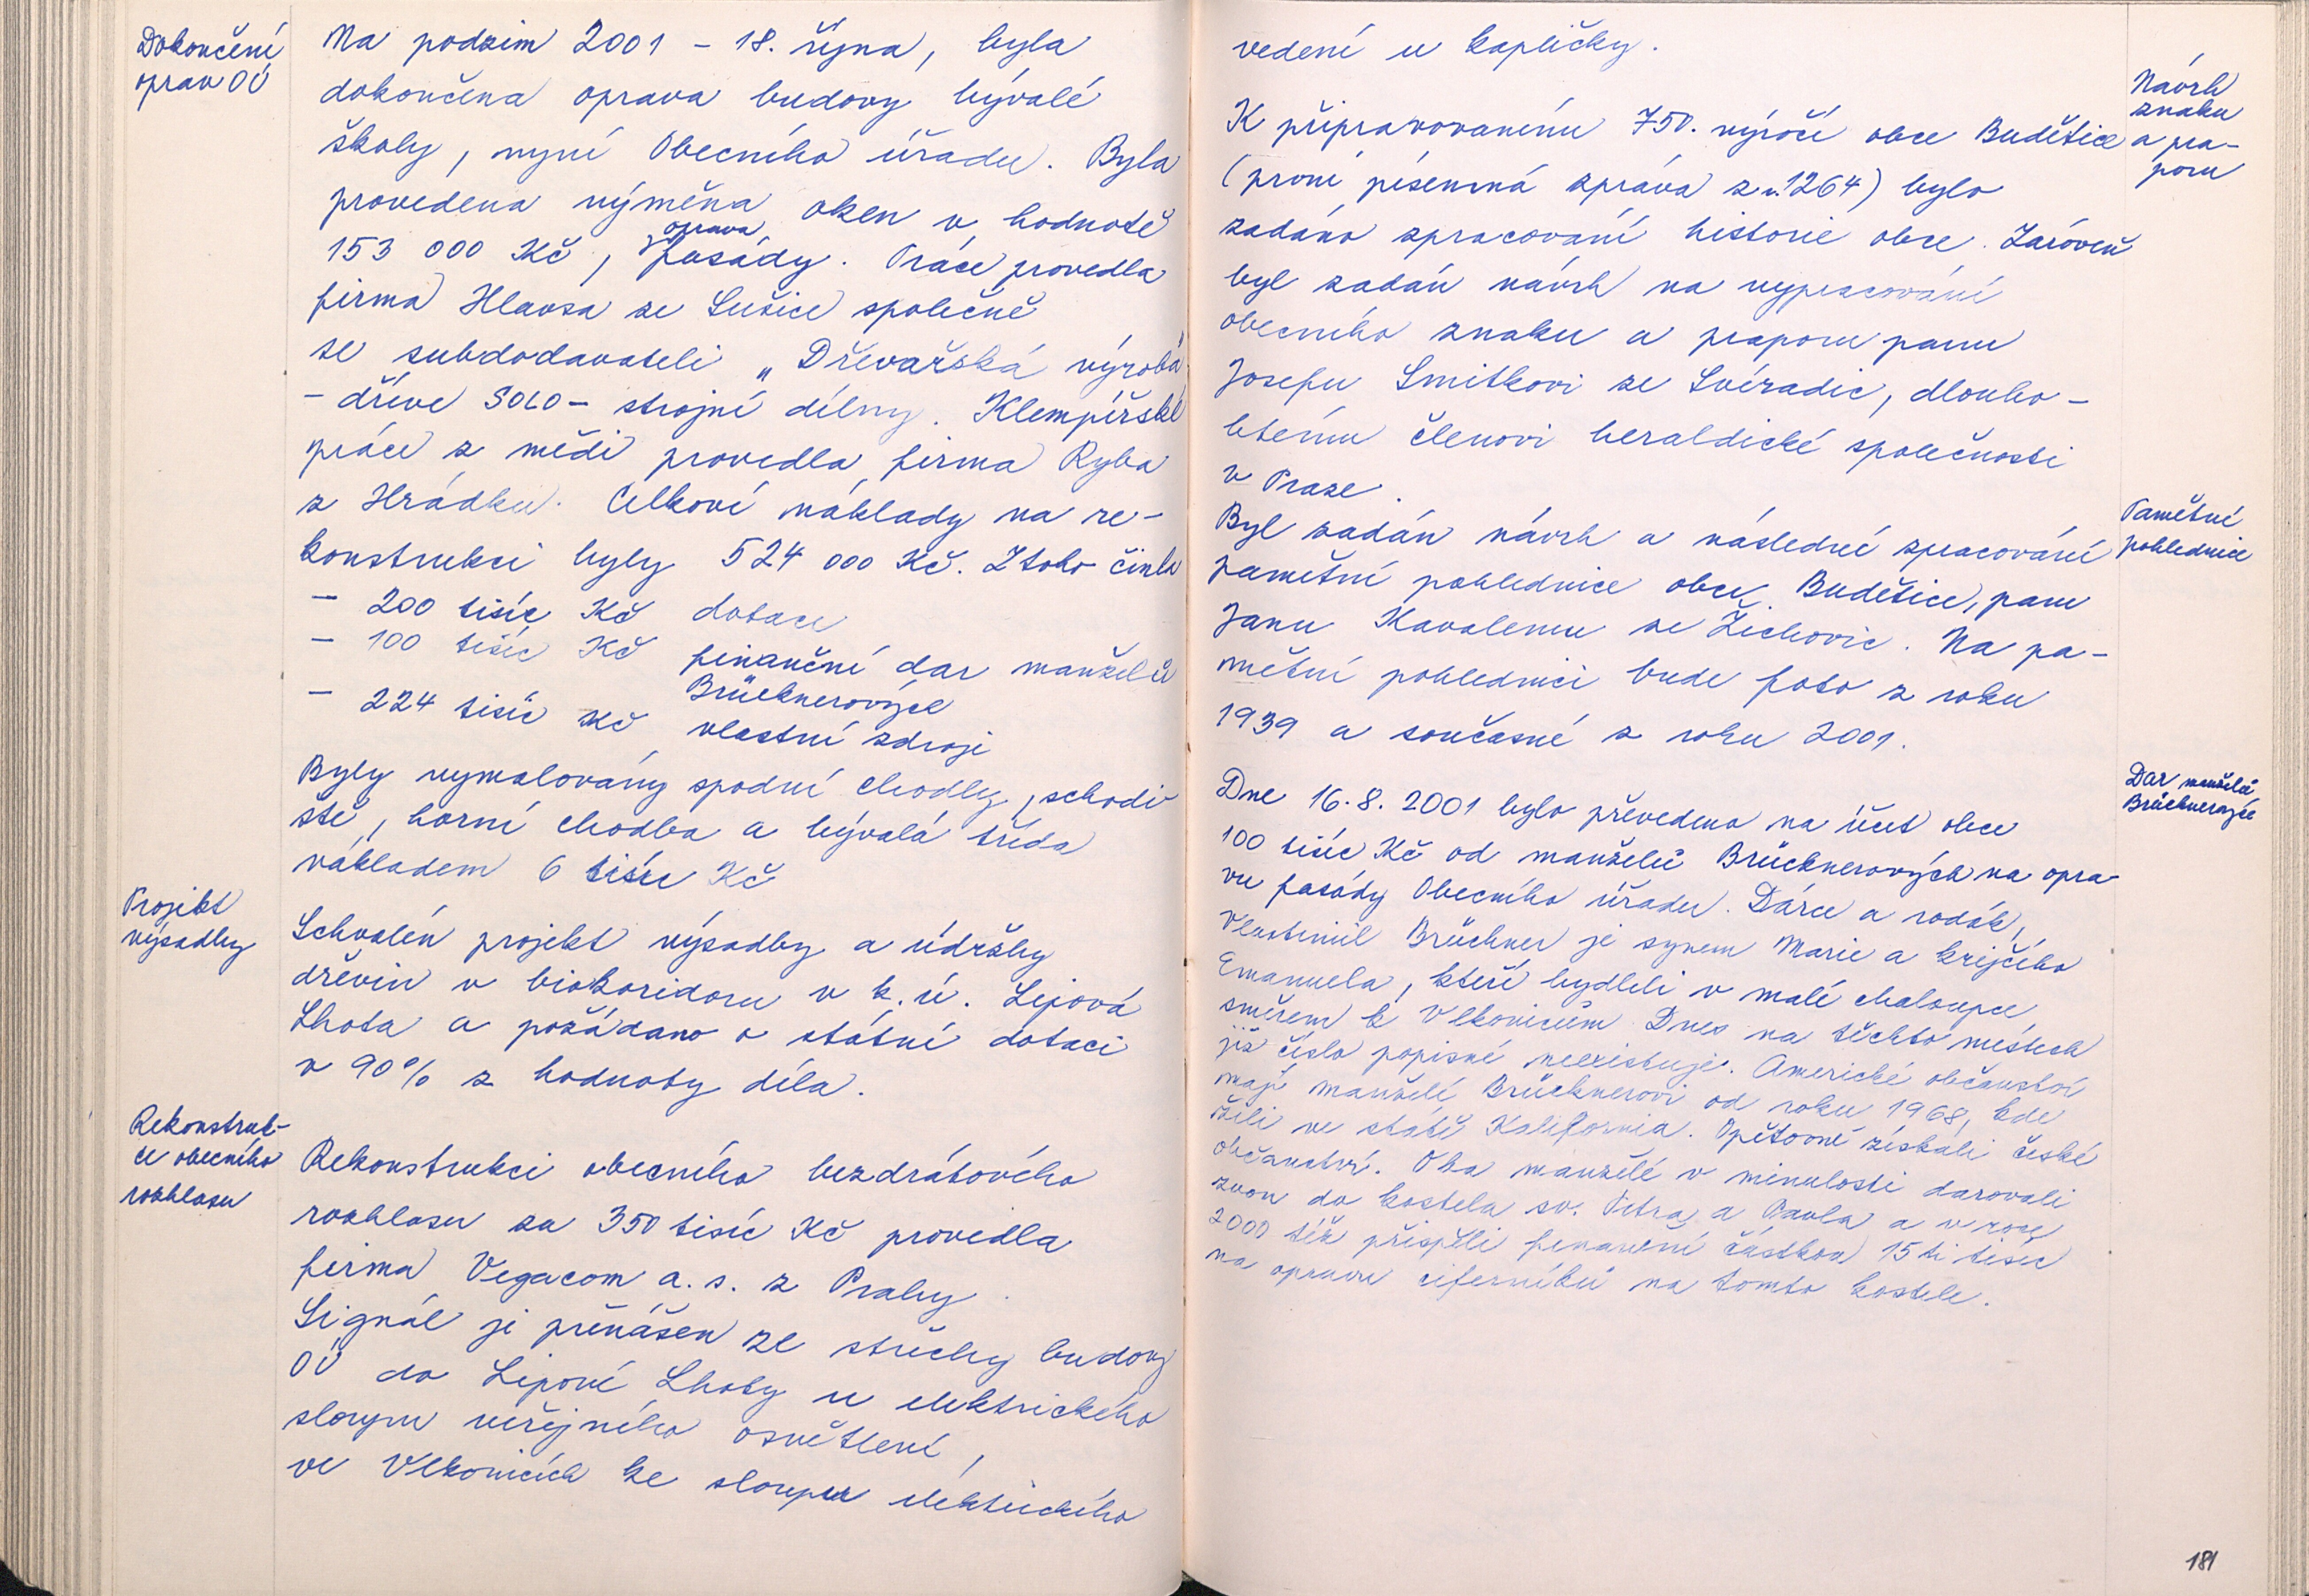 Dokončení
oprav OÚ
Na podzim 2001 - 18. října, byla
dokončena oprava budovy bývalé
školy, nyní Obecního úřadu. Byla
provedena výměna oken v hodnotě
153 000 Kč, oprava fasády. Práce provedla
firma Hlavsa ze Sušice společně
se subdodavateli „Dřevařská výroba"
- dříve SOLO - strojní dílny. Klempířské
práce z mědi provedla firma Ryba
z Hrádku. Celkové náklady na re-
konstrukci byly 524 000 Kč. Z toho činila
- 200 tisíc Kč dotace
- 100 tisíc Kč finanční dar manželů
Brücknerových
- 224 tisíc Kč vlastní zdroje
Byly vymalovány spodní chodby, schodi
ště, horní chodba a bývalá třída
nákladem 6 tisíc Kč
Projekt
výsadby
Schválen projekt výsadby a údržby
dřevin v biokoridoru v k.ú. Lipová
Lhota a požádáno o státní dotaci
v 90% z hodnoty díla.
Rekonstruk-
ce obecního
rozhlasu
Rekonstrukci obecního bezdrátového
rozhlasu za 350 tisíc Kč provedla
firma Vegacom a.s. z Prahy.
Signál je přenášen ze střechy budovy
OÚ do Lipové Lhoty u elektrického
sloupu veřejného osvětlení,
ve Vlkonicích ke sloupu elektrického
vedení u kapličky.
Návrh
znaku
a pra-
poru
K připravovanému 750. výročí obce Budětice
(první písemná zpráva z r. 1264) bylo
zadáno zpracování historie obce. Zároveň
byl zadán návrh na vypracování
obecního znaku a praporu panu
Josefu Smitkovi ze Svéradic, dlouho-
letému členovi heraldické společnosti
v Praze.
Pamětní
pohlednice
Byl zadán návrh a následné zpracování
pamětní pohlednice obce Budětice, panu
Janu Kavalemu ze Žichovic. Na pa-
mětní pohlednici bude foto z roku
1939 a současné z roku 2001.
Dar manželů
Brücknerových
Dne 16.8.2001 bylo převedeno na účet obce
100 tisíc Kč od manželů Brücknerových na opra-
vu fasády Obecního úřadu. Dárce a rodák,
Vlastimil Brückner je synem Marie a krejčího
Emanuela, kteří bydleli v malé chaloupce
směrem k Vlkonicům. Dnes na těchto místech
již číslo popisné neexistuje. Americké občanství
mají manželé Brücknerovi od roku 1968, kde
žili ve státě Kalifornia. Opětovně získali české
občanství. Oba manželé v minulosti darovali
zvon do kostela sv. Petra a Pavla a v roce
2000 též přispěli finanční částkou 15ti tisíc
na opravu ciferníků na tomto kostele.
181